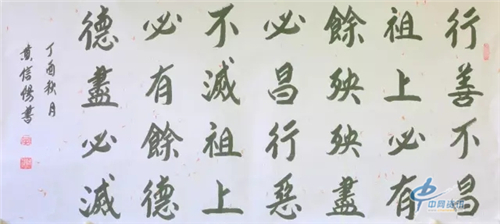 行善不昌
祖上必有
餘殃殃盡
必昌行惡
不滅祖上
必有餘德
德盡必滅
丁酉秋月
信 書